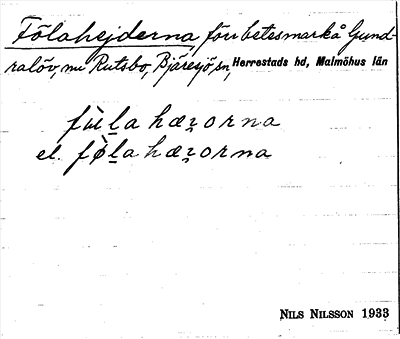 Fölahejderna, förr betesmark å Gund-
ralöv, nu Rutsbo, Bjäresjö sn, Herrestads hd, Malmöhus län
el.
NILS NILSSON 1933